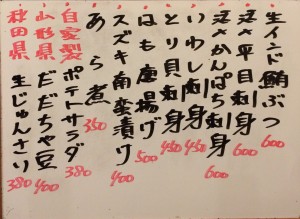 生インド鮪ぶつ 600
活〆平目刺身 600
活〆かんぱち刺身 600
いわし刺身 450
とり貝刺身 450
はも唐揚げ 500
スズキ南蛮漬け 400
あら煮 350
自家製ポテトサラダ 380
山形県 だだちゃ豆 400
秋田県 生じゅんさい 380